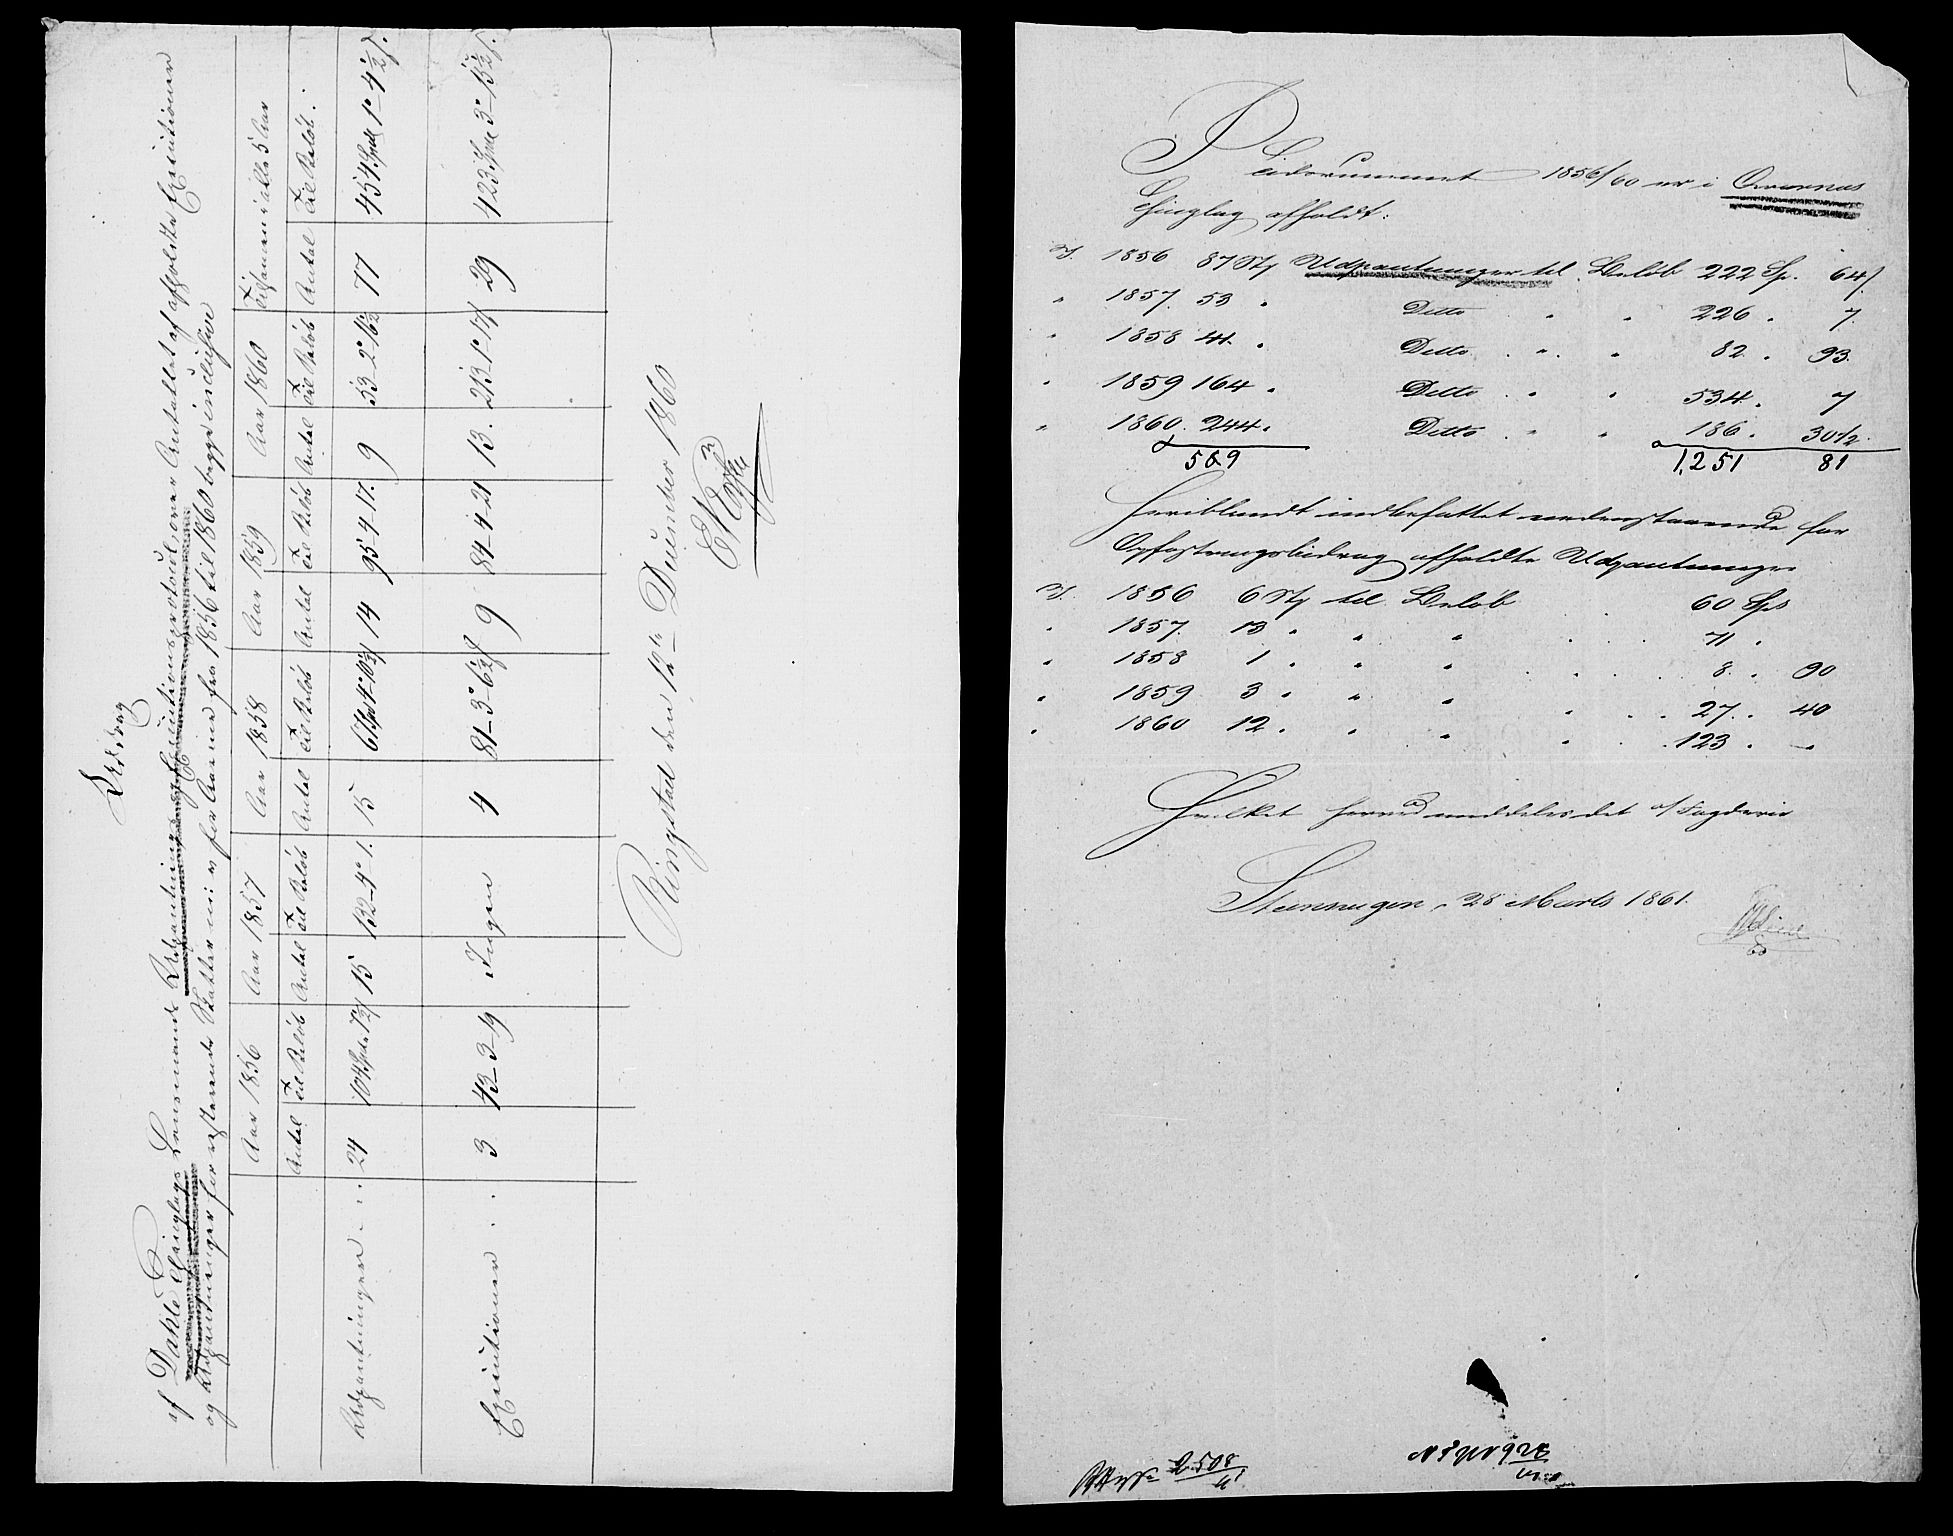 Uddrag
af Dahle Thinglags Lensmands Udpantnings og Executionsprotocol, over Antallet af afholdte Executioner
og Udpantninger for resterende Skatter m: v: for Aarene fra 1856 til 1860 begge inclusive
Aar 1856 Aar 1857 Aar 1858 Aar 1859 Aar 1860 Tilsammen i alle 5 Aar
Antal Til Beløb Antal Til Beløb Antal Til Beløb Antal Til Beløb Antal Til Beløb Antal Til Beløb.
Udpantninger .. 24 104 Spd 7½ 15 132-4°1. 15 67 Spd 4°10½ 14 95-4-17. 9 53-2-16½ 77 454 Spdl 1°-4½ s.
Executioner . . 3 43-3-19 Ingen 4 81-3-6½ 9 84-4-21 13. 213-1-17 29 423 Spdl 3°-15½ s.
Ringstad den 12te December 1860
I Tidsrummet 1856/60 er i Qvernæs
Thinglag afholdt:
I. 1856 87 Stk Udpantninger til Beløb 222 Sp. 64 s.
" 1857. 53 " Ditto " " 226 " 7.
" 1858 41. " Ditto . " . " 82 . 93.
" 1859 164 " Ditto . " " 534 . 7
" 1860. 244. Ditto . " " 186. 30½.
589 1,251 81
Heriblandt indbefattet nedenstaaende for
Opfostringsbidrag afholdte Udpantninger
I. 1856 6 Stk til Beløb 60 Sps
" 1857. 13 " " " . . 71 .
" 1858 1 . " " . . . 8. . 90
" 1859 3 " " " . . . 27. . 40
" 1860 12. " " . . . 123 . -
Hvilket herved meddeles det Fogderie
Stensvigen, 28 Marts 1861.